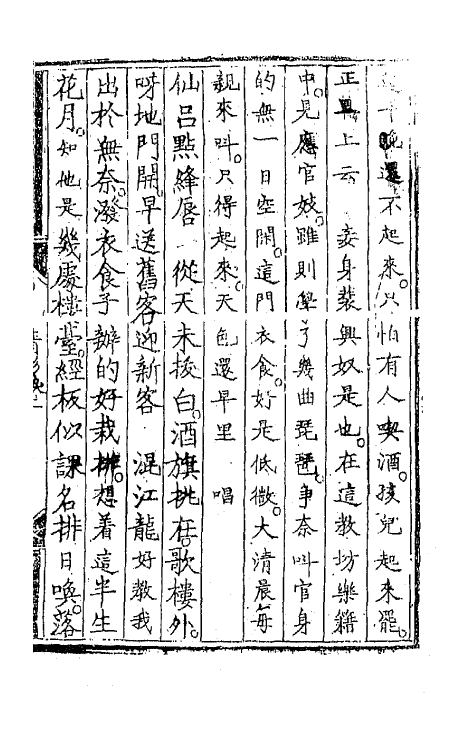 早晚還不起來。只怕有人喫酒。孩兒起來罷。
正旦上云　妾身裴興奴是也。在這教坊樂籍
中。見應官妓。雖則學了幾曲琵琶。爭奈叫官身
的無一日空閑。這門衣食。好是低微。大清晨每
親來叫。只得起來。天色還早里　唱
仙呂點絳唇　從天未拔白。酒旗挑在。歌樓外。
呀地門開。早送舊客迎新客　混江龍好教我
出於無奈。潑衣食子辦的好栽排。想着這半生
花月。知他是幾處樓臺。經板似課名排日喚。落